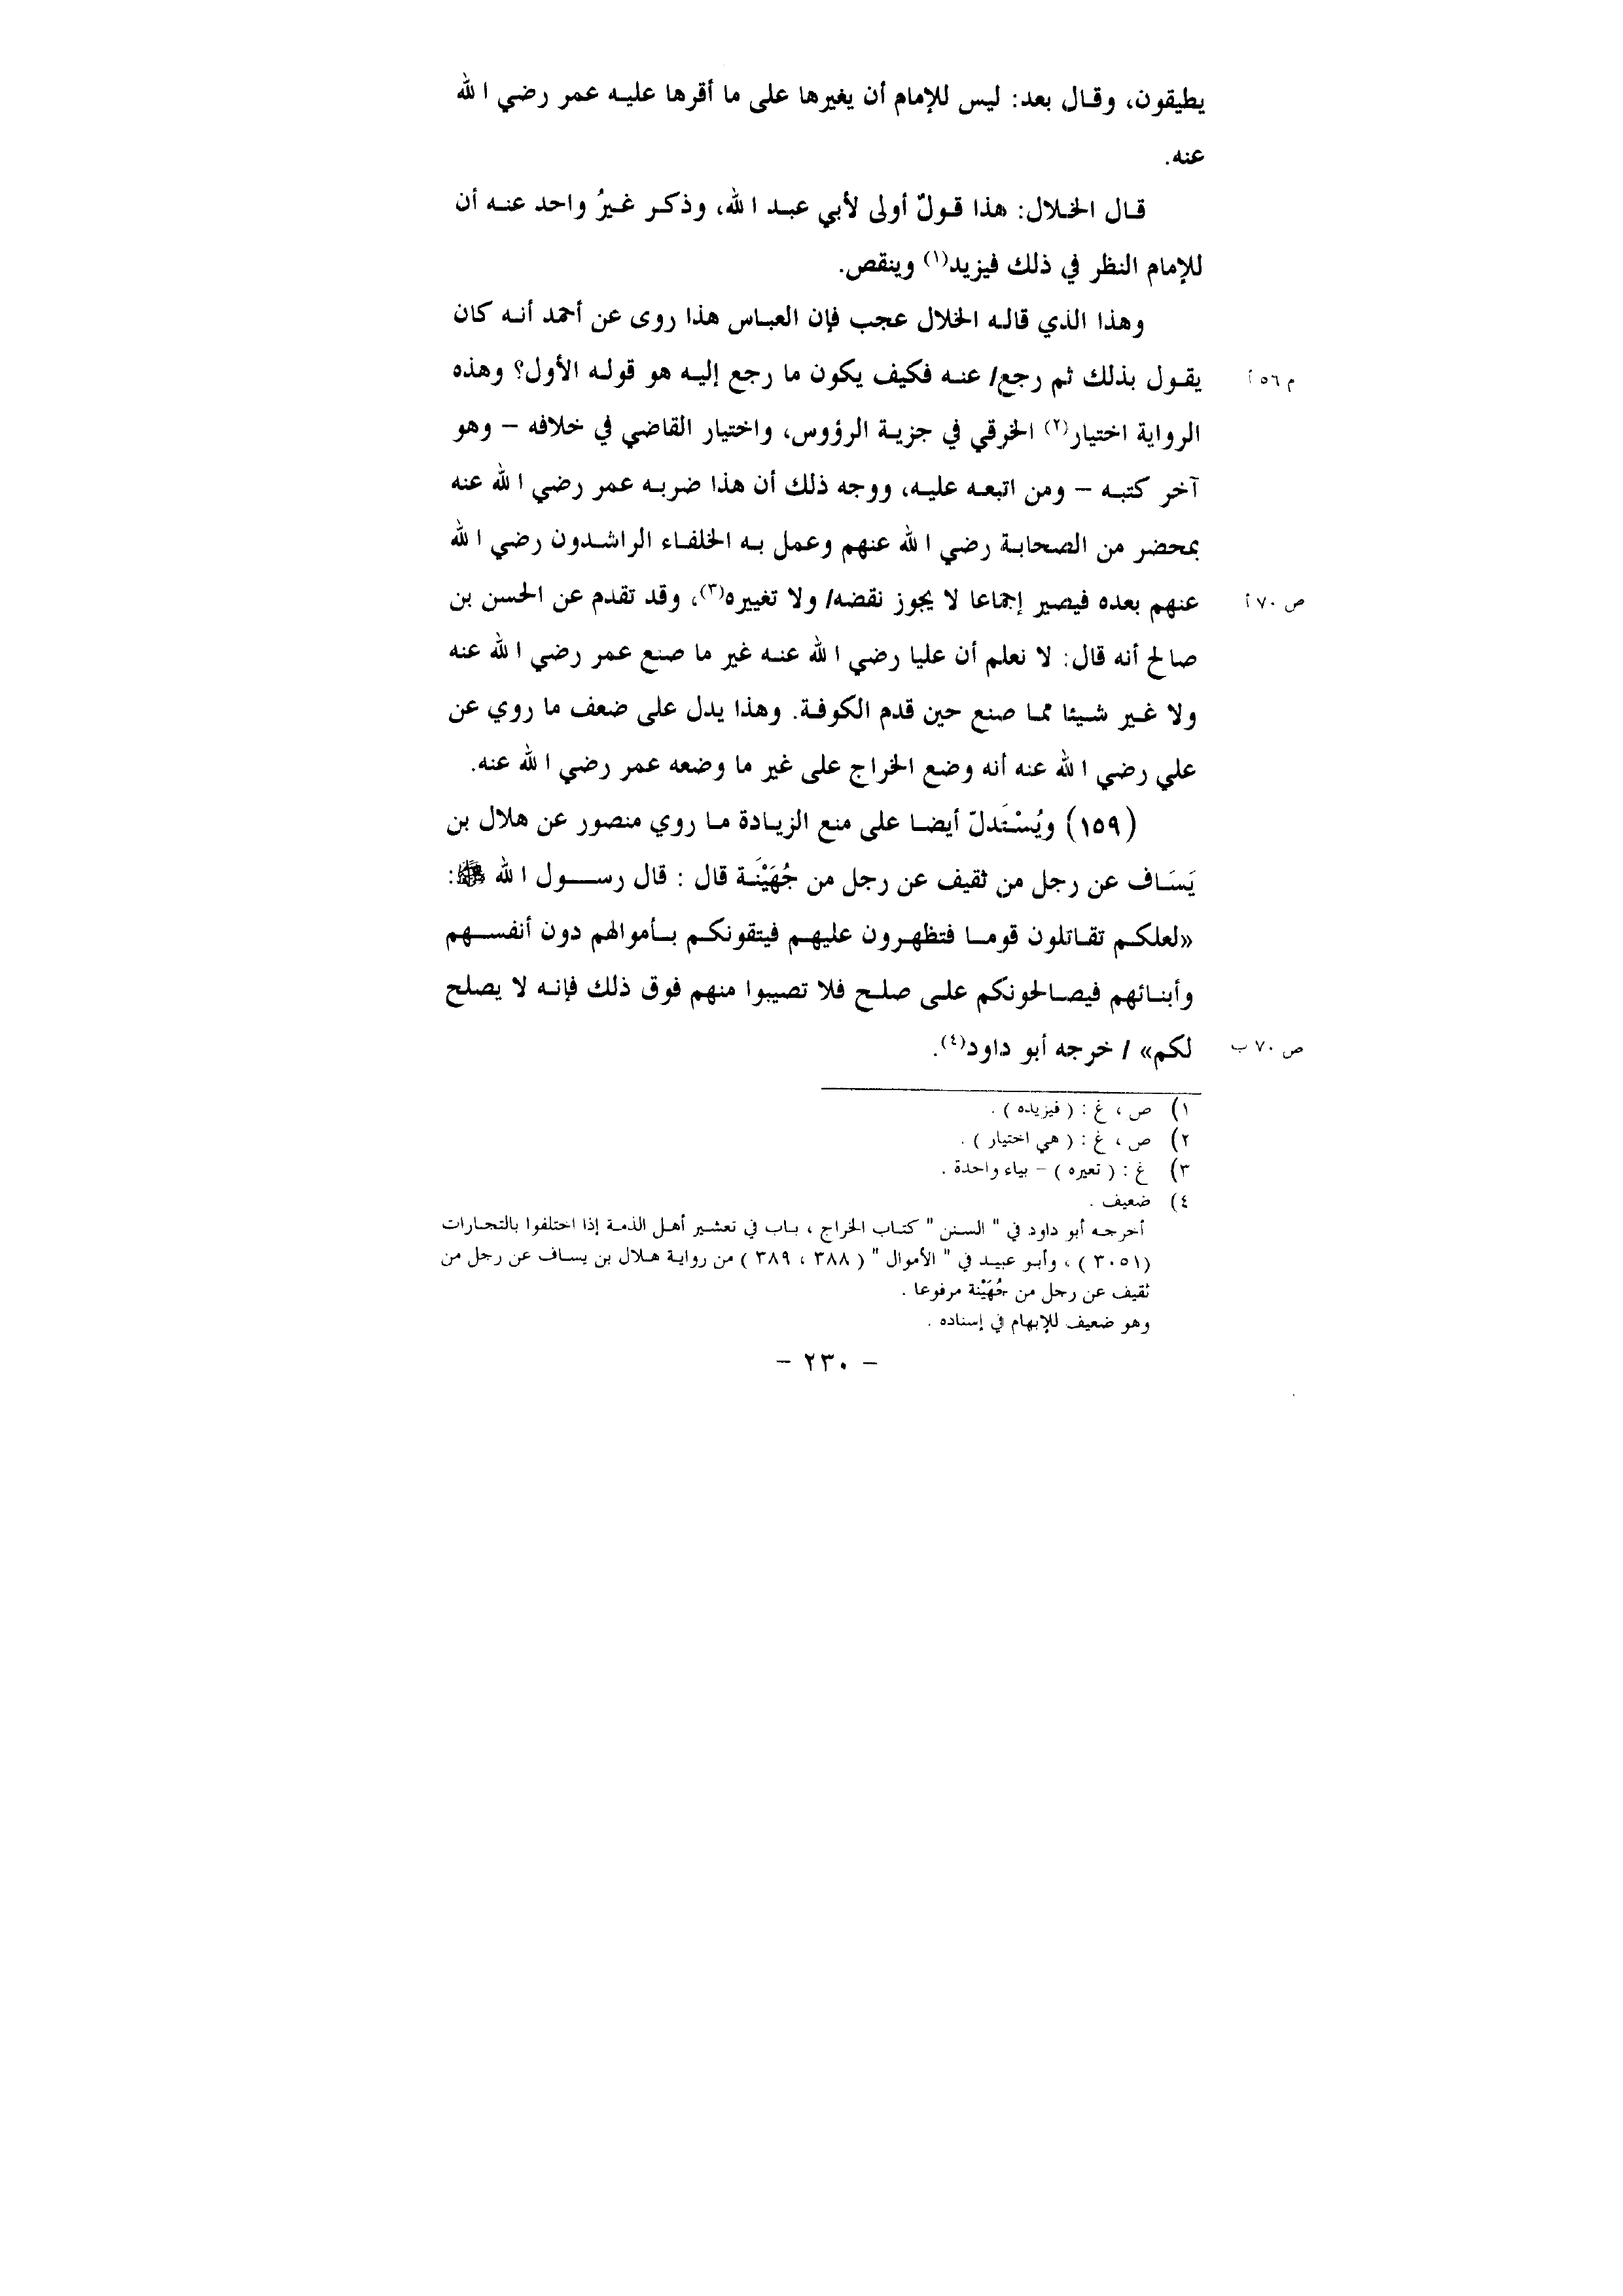 يطيقون، وقال بعد: ليس للإمام أن يغيرها على ما أقرها عليه عمر رضي الله
عنه.
قال الخلال: هذا قولٌ أولى لأبي عبد الله، وذكر غيرُ واحد عنه أن
للإمام النظر في ذلك فيزيد(١) وينقص.
وهذا الذي قاله الخلال عجب فإن العباس هذا روى عن أحمد أنه كان
يقول بذلك ثم رجع/ عنه فكيف يكون ما رجع إليه هو قوله الأول؟ وهذه
م ٥٦ أ
الرواية اختيار(٢) الخرقي في جزية الرؤوس، واختيار القاضي في خلافه – وهو
آخر كتبه – ومن اتبعه عليه، ووجه ذلك أن هذا ضربه عمر رضي الله عنه
بمحضر من الصحابة رضي الله عنهم وعمل به الخلفاء الراشدون رضي الله
عنهم بعده فيصير إجماعا لا يجوز نقضه/ ولا تغييره(٣)، وقد تقدم عن الحسن بن
ص ٧٠ أ
صالح أنه قال: لا نعلم أن عليا رضي الله عنه غير ما صنع عمر رضي الله عنه
ولا غير شيئا مما صنع حين قدم الكوفة. وهذا يدل على ضعف ما روي عن
علي رضي الله عنه أنه وضع الخراج على غير ما وضعه عمر رضي الله عنه.
(١٥٩) ويُسْتَدلّ أيضا على منع الزيادة ما روي منصور عن هلال بن
يَسَاف عن رجل من ثقيف عن رجل من جُهَيْنَة قال : قال رسول الله ﷺ:
«لعلكم تقاتلون قوما فتظهرون عليهم فيتقونكم بأموالهم دون أنفسهم
وأبنائهم فيصالحونكم على صلح فلا تصيبوا منهم فوق ذلك فإنه لا يصلح
لكم» / خرجه أبو داود(٤).
ص ٧٠ ب
١) ص ، غ : ( فيزيده ) .
٢) ص ، غ : ( هي اختيار ) .
٣) غ : ( تعيره ) – بياء واحدة .
٤) ضعيف .
أخرجه أبو داود في " السنن " كتاب الخراج ، باب في تعشير أهل الذمة إذا اختلفوا بالتجارات
(٣٠٥١ ) ، وأبو عبيد في " الأموال " ( ٣٨٨ ، ٣٨٩ ) من رواية هلال بن يساف عن رجل من
ثقيف عن رجل من جُهَيْنة مرفوعا .
وهو ضعيف للإبهام في إسناده .
– ٢٣٠ –